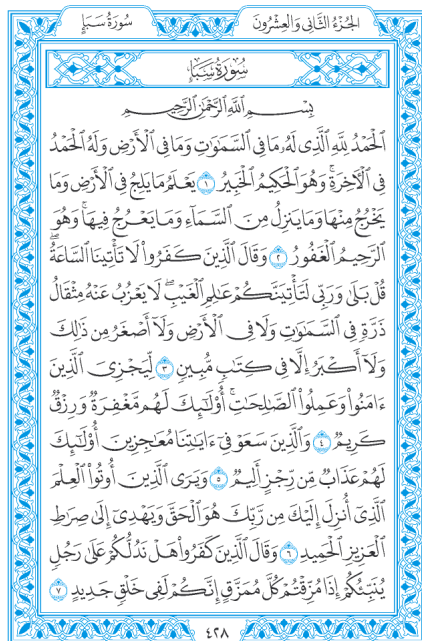 الجُزْءُ الثَّانِي وَالعِشْرُونَ
سُورَةُ سَبَإٍ
سُورَةُ سَبَإٍ
بِسْمِ ٱللَّهِ ٱلرَّحْمَٰنِ ٱلرَّحِيمِ
ٱلْحَمْدُ لِلَّهِ ٱلَّذِى لَهُۥ مَا فِى ٱلسَّمَٰوَٰتِ وَمَا فِى ٱلْأَرْضِ وَلَهُ ٱلْحَمْدُ
فِى ٱلْـَٔاخِرَةِۚ وَهُوَ ٱلْحَكِيمُ ٱلْخَبِيرُ ١ يَعْلَمُ مَا يَلِجُ فِى ٱلْأَرْضِ وَمَا
يَخْرُجُ مِنْهَا وَمَا يَنزِلُ مِنَ ٱلسَّمَآءِ وَمَا يَعْرُجُ فِيهَاۚ وَهُوَ
ٱلرَّحِيمُ ٱلْغَفُورُ ٢ وَقَالَ ٱلَّذِينَ كَفَرُوا۟ لَا تَأْتِينَا ٱلسَّاعَةُۖ
قُلْ بَلَىٰ وَرَبِّى لَتَأْتِيَنَّكُمْ عَٰلِمِ ٱلْغَيْبِۖ لَا يَعْزُبُ عَنْهُ مِثْقَالُ
ذَرَّةٍ فِى ٱلسَّمَٰوَٰتِ وَلَا فِى ٱلْأَرْضِ وَلَآ أَصْغَرُ مِن ذَٰلِكَ
وَلَآ أَكْبَرُ إِلَّا فِى كِتَٰبٍ مُّبِينٍ ٣ لِّيَجْزِىَ ٱلَّذِينَ
ءَامَنُوا۟ وَعَمِلُوا۟ ٱلصَّٰلِحَٰتِۚ أُو۟لَٰٓئِكَ لَهُم مَّغْفِرَةٌ وَرِزْقٌ
كَرِيمٌ ٤ وَٱلَّذِينَ سَعَوْ فِىٓ ءَايَٰتِنَا مُعَٰجِزِينَ أُو۟لَٰٓئِكَ
لَهُمْ عَذَابٌ مِّن رِّجْزٍ أَلِيمٌ ٥ وَيَرَى ٱلَّذِينَ أُوتُوا۟ ٱلْعِلْمَ
ٱلَّذِىٓ أُنزِلَ إِلَيْكَ مِن رَّبِّكَ هُوَ ٱلْحَقَّ وَيَهْدِىٓ إِلَىٰ صِرَٰطِ
ٱلْعَزِيزِ ٱلْحَمِيدِ ٦ وَقَالَ ٱلَّذِينَ كَفَرُوا۟ هَلْ نَدُلُّكُمْ عَلَىٰ رَجُلٍ
يُنَبِّئُكُمْ إِذَا مُزِّقْتُمْ كُلَّ مُمَزَّقٍ إِنَّكُمْ لَفِى خَلْقٍ جَدِيدٍ ٧
٤٢٨